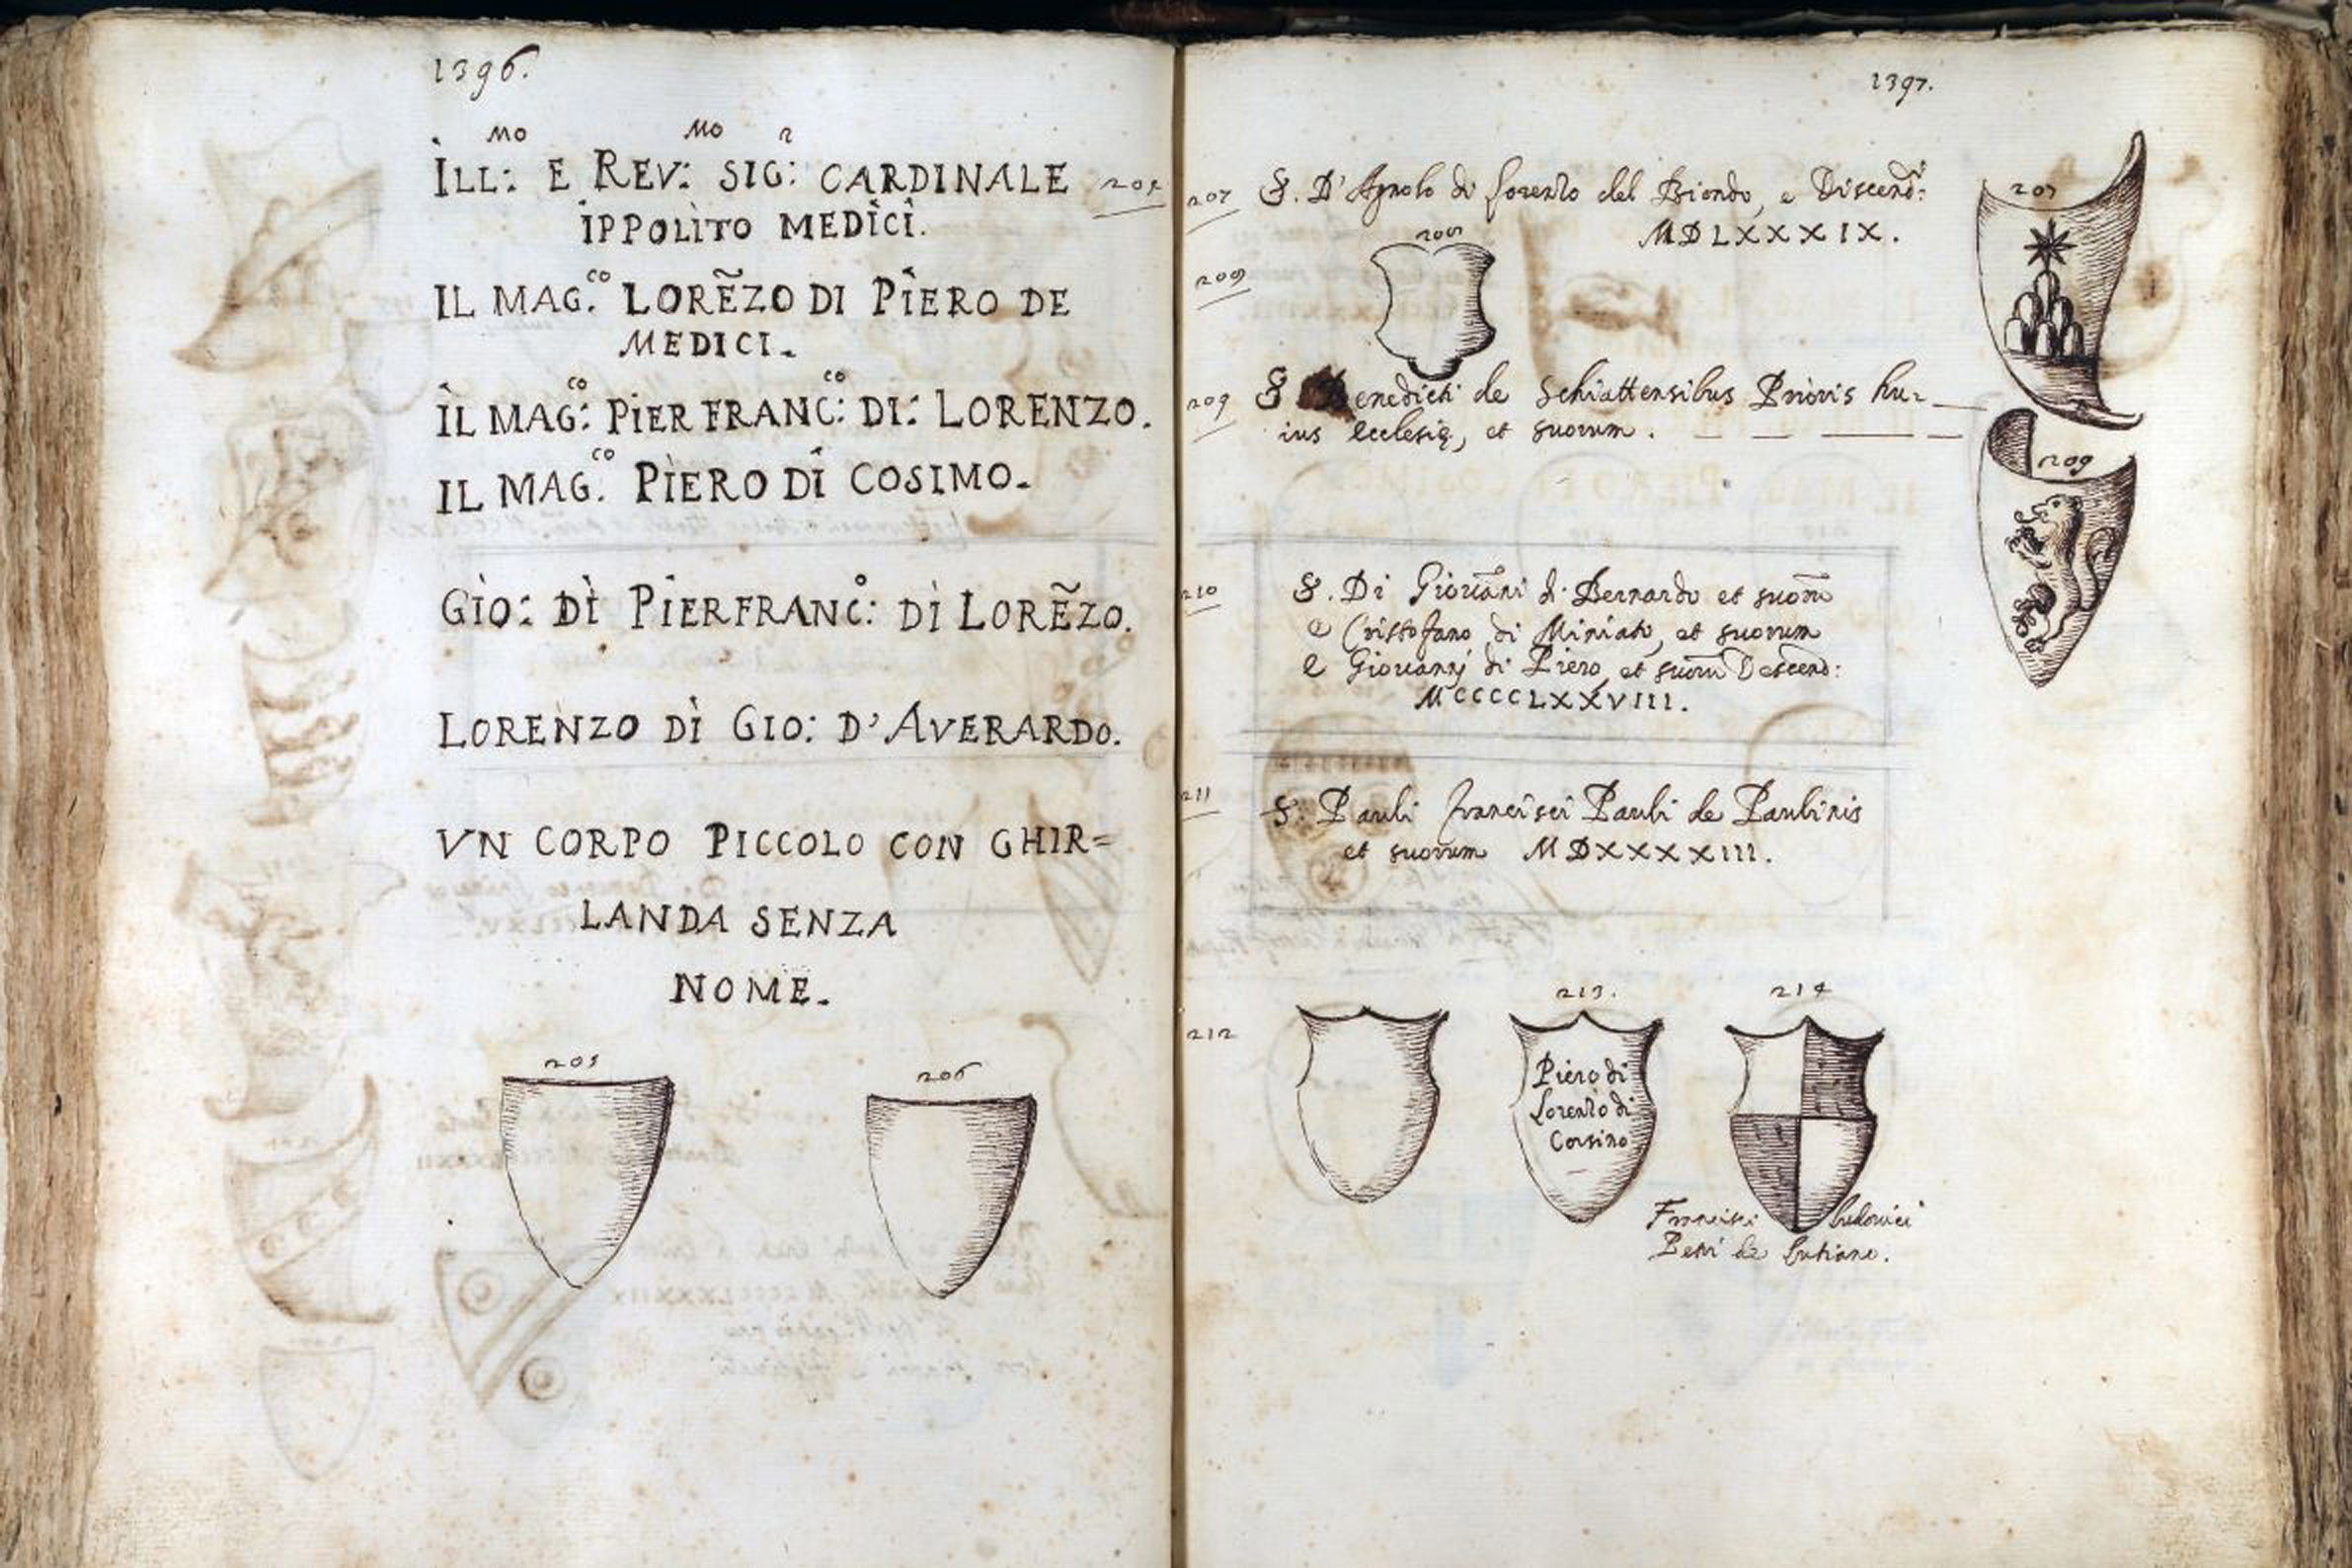 1396.
Mo Mo r
ILL: E REV: SIG: CARDINALE 204
IPPOLITO MEDICI.
IL MAG.co LORẼZO DI PIERO DE
MEDICI.
IL MAG:co PIER FRANC:co DI: LORENZO.
IL MAG.co PIERO DI COSIMO.
GIO: DI PIERFRANC:o DI LORẼZO.
LORENZO DI GIO: D'AVERARDO.
VN CORPO PICCOLO CON GHIR=
LANDA SENZA
NOME.
205 206
1397.
207 S. D'Agnolo di Lorenzo del Biondo, e Discend:i
MDLXXXIX.
207
208
209 S Benedicti de Schiattensibus Prioris hu-
ius Ecclesię, et suorum.
209
210 S. Di Giovāni di Bernardo et suom̄
e Cristofano di Miniato, et suorum
e Giovanni di Piero, et suorū Descend:
MCCCCLXXVIII.
211 S. Pauli Francisci Pauli de Paulinis
et suorum MDXXXXIII.
212 213. 214
Piero di
Lorenzo di
Corsino
Francisci Ludovici
Petri de